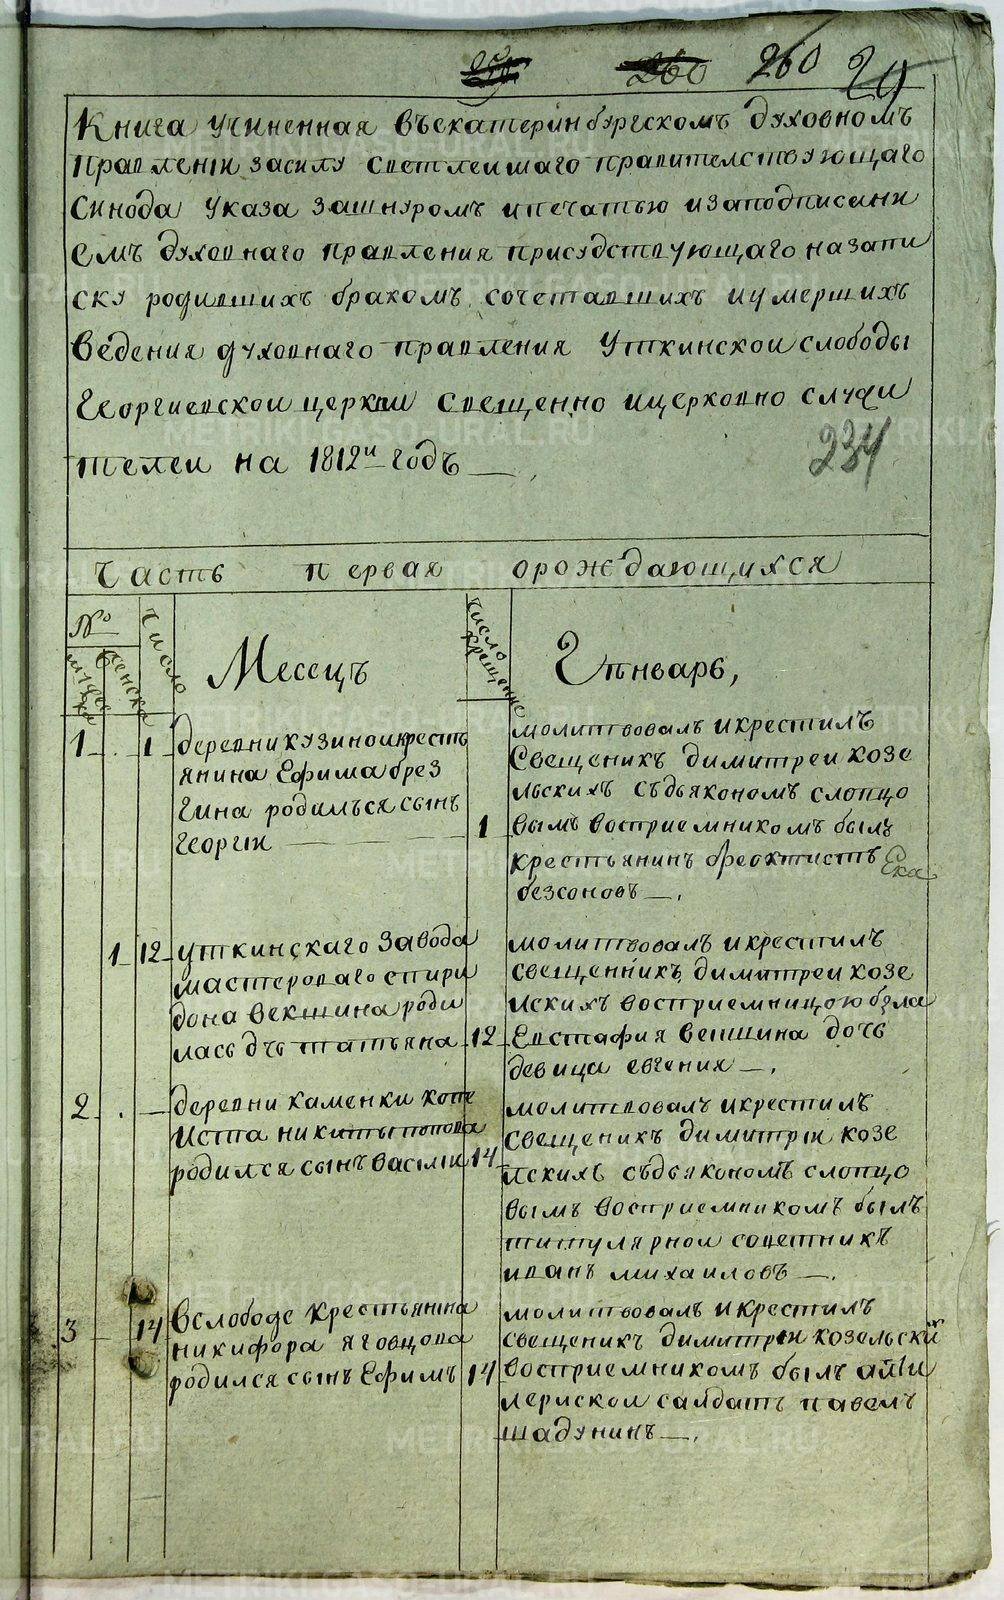 260 260 20
Книга учиненная въекатеринбургскомъ духовномъ
правленіи засилу светлеишаго правителствующаго
синода указа зашнуромъ ипечатью изаподписани
емъ духовнаго правления присудствующаго назапи
ску родившихъ бракомъ сочетавшихъ иумершихъ
ведения духовнаго правления Уткинскои слободы
Георгиевскои церкви священно ицерковно служи
телеи на 1812й годъ
234
Часть первая орождающихся
№
мужеска
женска
число
Месецъ
число крещения
Генварь,
1 . 1 деревни кузинои крестъ
янина Ефима брез
гина родилься сынъ
георгіи
1
молитвовалъ икрестилъ
Свещеникъ димитреи козе
льскихъ съдьякономъ слопцо
вымъ восприемникомъ былъ
крестьянинъ феоктистъ
безсоновъ
Ека
1 12 уткинскаго завода
мастероваго спири
дона векшина роди
лась дчь татьяна 12
молитвовалъ икрестилъ
свещенникъ димитреи козе
лскихъ восприемницою была
Евстафия векшина дочь
девица евгения
2 . деревни каменки копе
иста никиты попова
родился сынъ васіліи 14
молитвовалъ икрестилъ
свещеникъ димитріи козе
лскихъ съдьякономъ слопцо
вымъ восприемникомъ былъ
титулярнои советникъ
иванъ михаиловъ
3 14 вслободе крестьянина
никифора яговцова
родился сынъ Ефимъ 14
молитвовалъ икрестилъ
свещеникъ димитріи козельскій
восприемникомъ былъ
салдатъ павелъ
шадунинъ